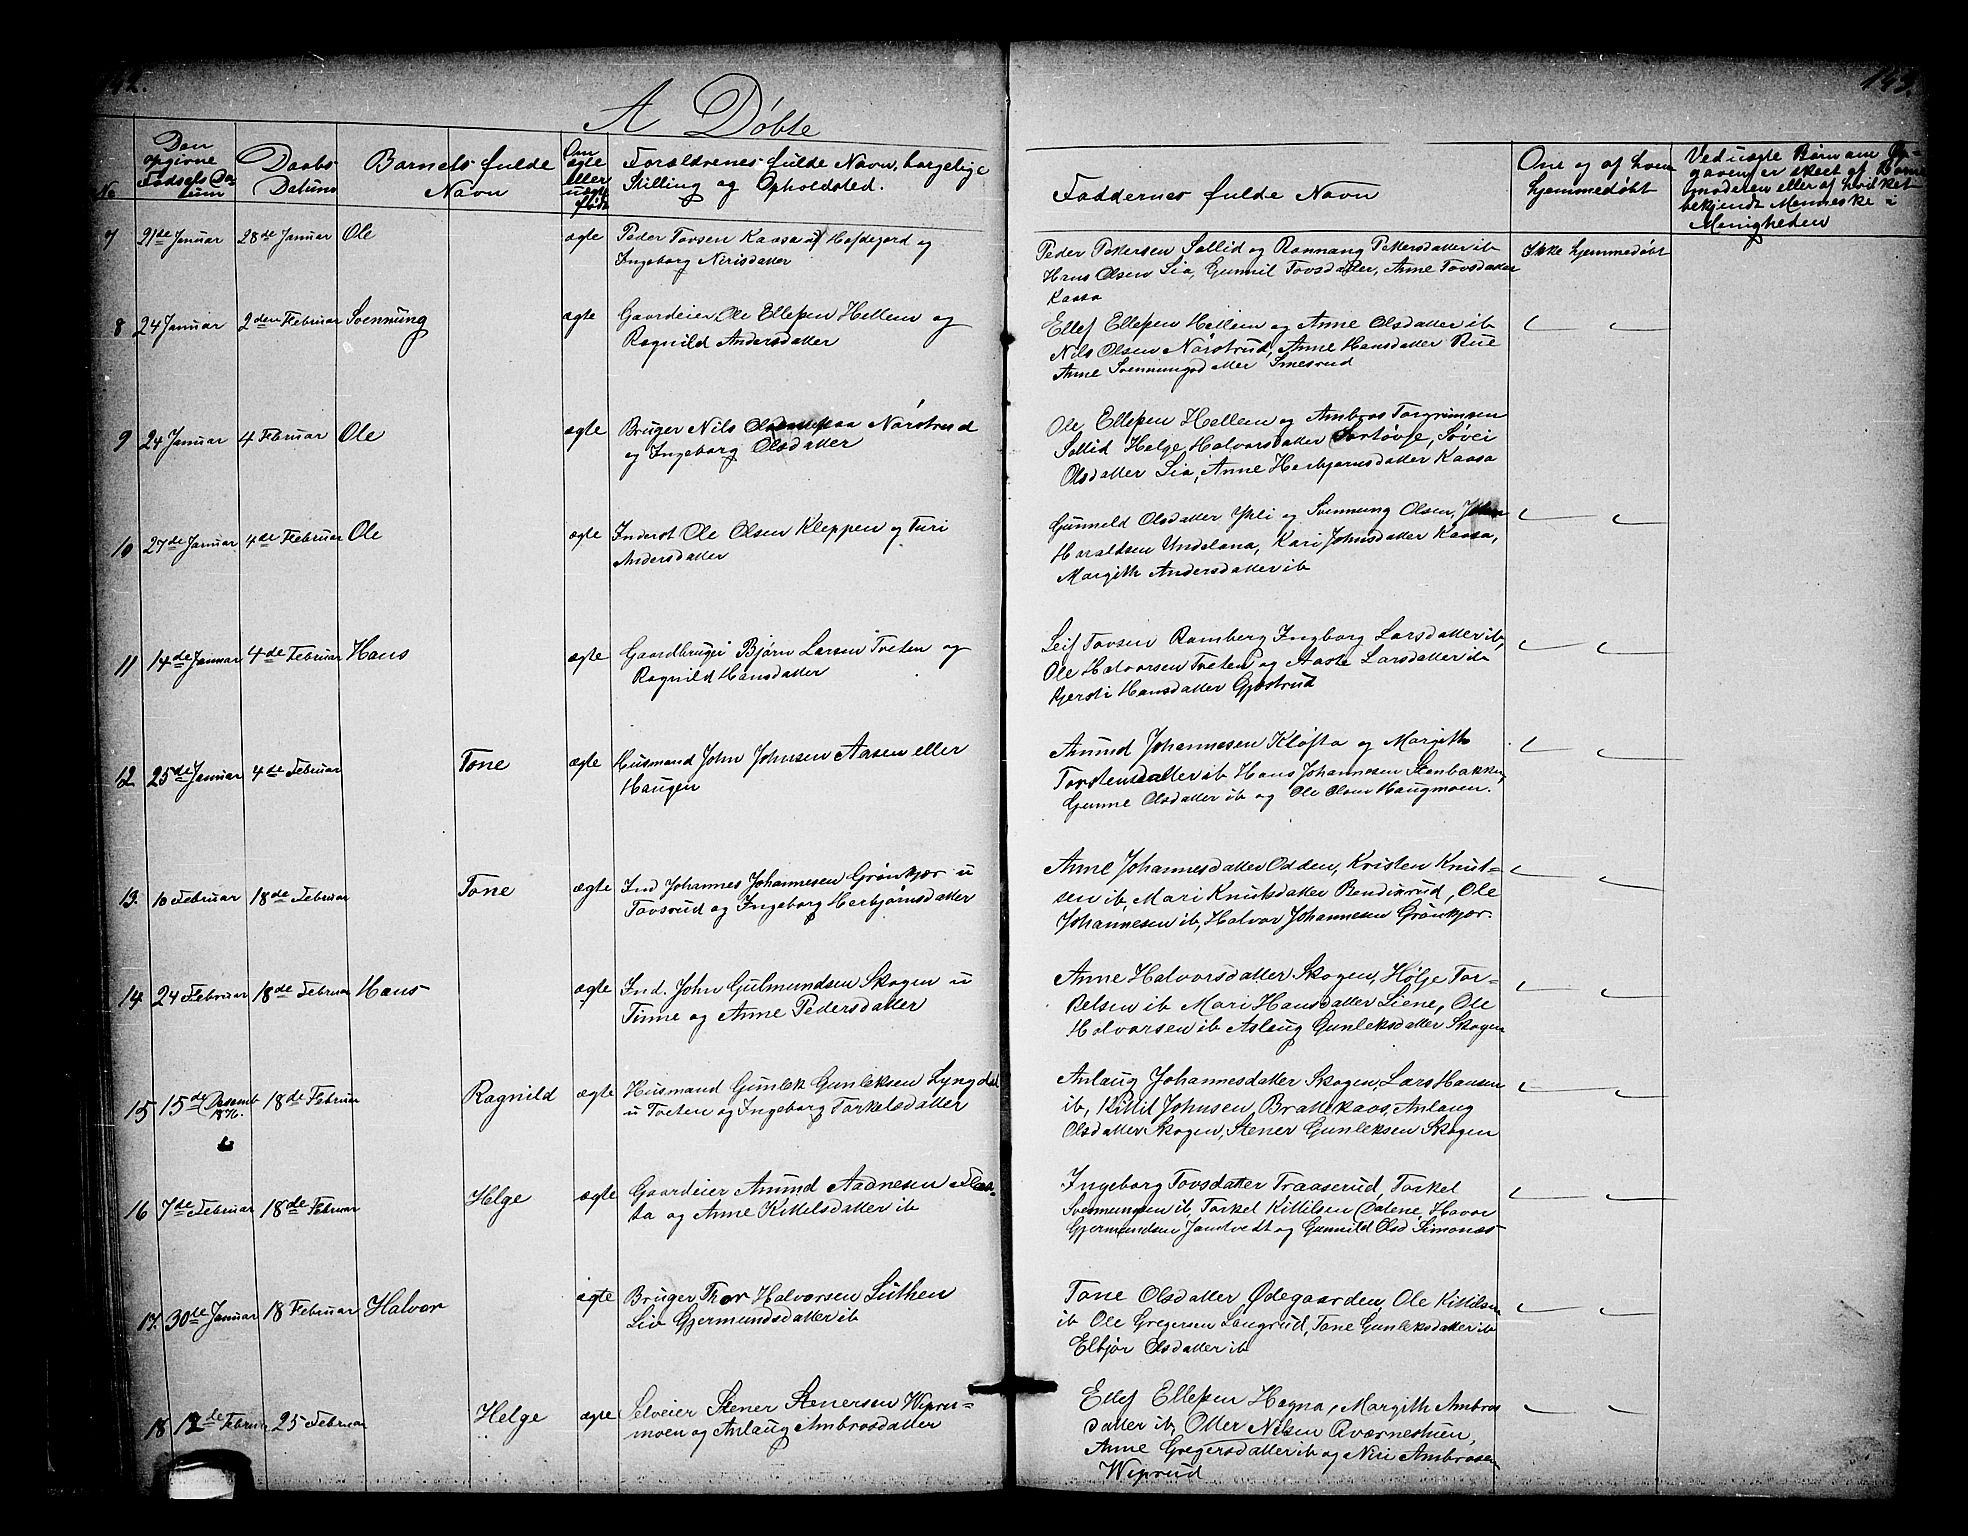 142.
143.
A Døbte
No
Den opgivne Fødsels Datum
Daabs Datum
Barnets fulde Navn
Om ægte eller uægte født
Forældrenes fulde Navn, borgelige Stilling og Opholdsted.
Faddernes fulde Navn
Om og af hvem hjemmedøbt
Ved uægte Børn om Opgaven er skeet af Barnemoderen eller af hvilket bekjendt Menneske i Menigheden
7 21de Januar 28de Januar Ole ægte Peder Tovsen Kaasa u/ Hofdegord og
Ingeborg Nirisdatter
Peder Pettersen Sollid og Rannaug Pettersdatter ib
Hans Olsen Lia, Gunnil Tovsdatter, Anne Tovsdatter
Kaasa
Ikke hjemmedøbt
8 24 Januar 2den Februar Svennung ægte Gaardeier Ole Ellefsen Hellem og
Ragnild Andersdatter
Ellef Ellefsen Hellem og Anne Olsdatter ib
Nils Olsen Nørstrud, Anne Hansdatter Rue
Anne Svennungsdatter Smesrud
9 24 Januar 4 Februar Ole ægte Bruger Nils Olsen paa Nørstrud
og Ingeborg Olsdatter
Ole Ellefsen Hellem og Ambros Torgrimsen
Sollid Helge Halvorsdatter Sortøvje, Søvei
Olsdatter Lia, Anne Herbjørnsdatter Kaasa
10 27de Januar 4de Februar Ole ægte Inderst Ole Olsen Kleppen og Turi
Andersdatter
Gunneld Olsdatter Yli og Svennung Olsen, John
Haraldsen Undelana, Kari Johnsdatter Kaasa,
Margith Andersdatter ib
11 14de Januar 4de Februar Hans ægte Gaardbruger Bjørn Larsen Tveten og
Ragnild Hansdatter
Leif Tovsen Ramberg Ingborg Larsdatter ib,
Ole Halvorsen Tveten og Aaste Larsdatter ib
Kjersti Hansdatter Gjøstrud
12 25de Januar 4de Februar Tone ægte Husmand John Johnsen Aasen eller
Haugen
Anund Johannesen Kløfta og Margith
Torstensdatter ib Hans Johannesen Stenbakken,
Gunne Olsdatter ib og Ole Olsen Haugmoen.
13. 10 Februar 18de Februar Tone ægte Ind Johannes Johannesen Grønkjær u
Tovsrud og Ingeborg Herbjørnsdatter
Anne Johannesdatter Odden, Kristen Knut-
sen ib, Mari Knutsdatter Bendixrud, Ole
Johannesen ib, Halvor Johannesen Grønkjær.
14 24 Februar 18de Februar Hans ægte Ind. John Gulmundsen Skogen u
Tinne og Anne Pedersdatter
Anne Halvorsdatter Skogen, Hølje Tor-
kelsen ib Mari Hansdatter Liene, Ole
Halvorsen ib Aslaug Gunleksdatter Skogen
15 15de Desemb 1876. 18de Februar Ragnild ægte Husmand Gunlek Gunleksen Lyngdal
u Tveten og Ingeborg Torkelsdatter
Anlaug Johannesdatter Skogen, Lars Hansen
ib, Kittil Johnsen Brattekaas, Anlaug
Olsdatter Skogen, Stener Gunleksen Skogen
16 7de Februar 18de Februar Helge ægte Gaardeier Anund Aadnesen Flaa-
ta og Anne Kittelsdatter ib
Ingeborg Tovsdatter Traaserud, Torkel
Svennungsen ib, Torkel Kittilsen Dalene, Havor
Gjermundsen Jamtvedt og Gunnild Olsd Simonæs
17. 30de Januar 18 Februar Halvor ægte Bruger Thor Halvorsen Luthen
Liv Gjermundsdatter ib
Tone Olsdatter Ødegaarden, Ole Kittilsen
ib Ole Gregersen Langrud, Tone Gunleksdatter ib
Elbjør Olsdatter ib
18 12de Februar 25 Februar Helge ægte Selveier Stener Stenersen Wiprus-
moen og Anlaug Ambrosdatter
Ellef Ellefsen Hogna, Margith Ambros
datter ib, Otter Nilsen Qværnestuen,
Anne Gregersdatter ib og Niri Ambrosen
Wiprud